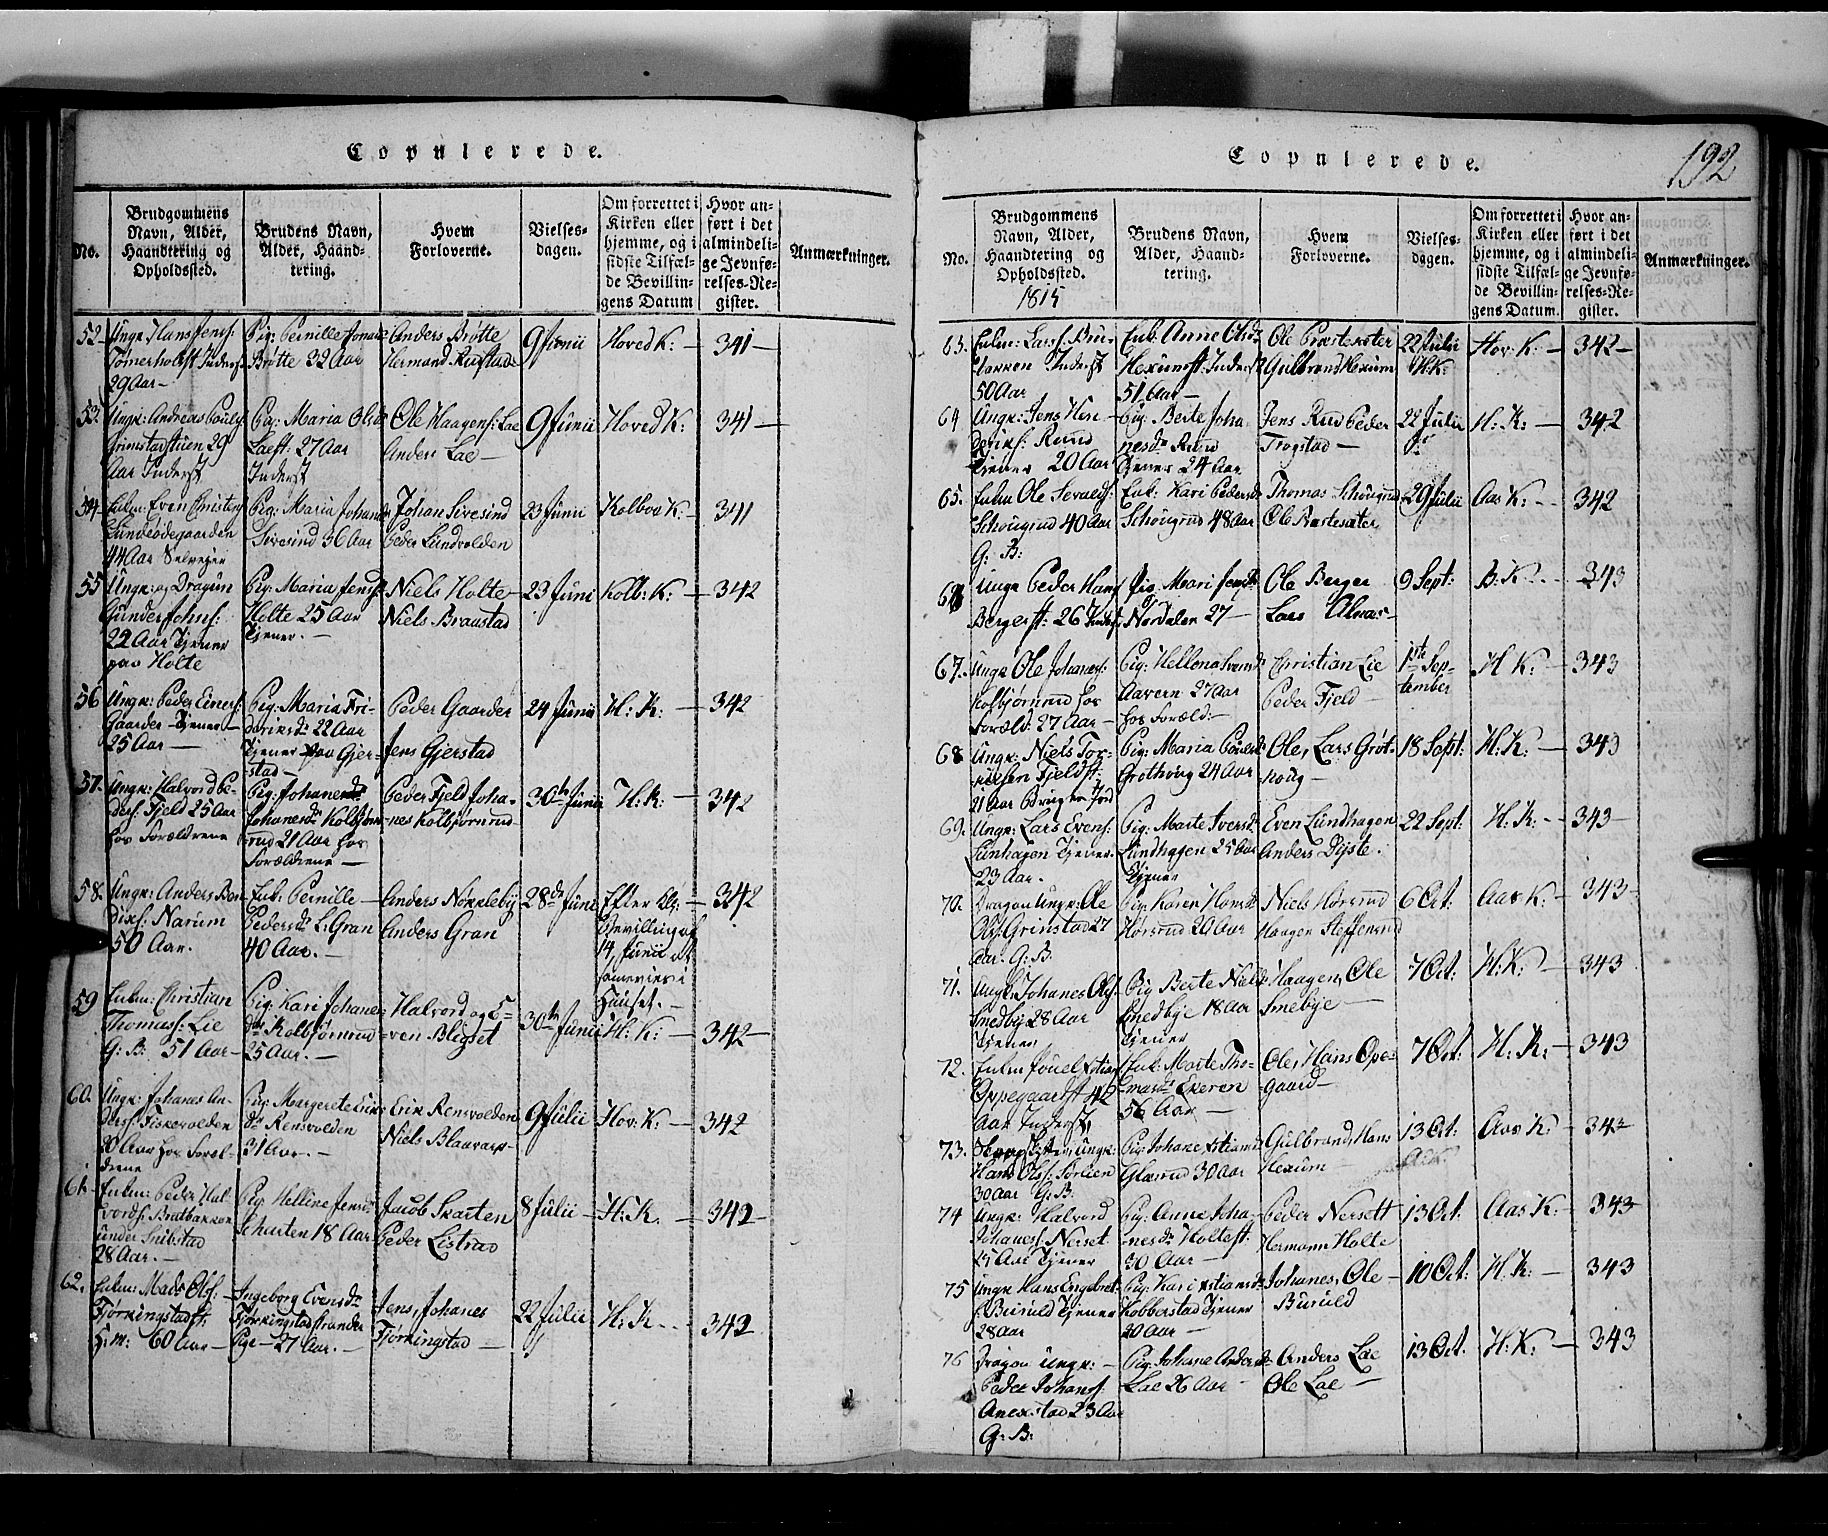 Copulerede.
No.
Brudgommens
Navn, Alder,
Haandtering og
Opholdssted.
Brudens Navn,
Alder, Haand-
tering.
Hvem
Forloverne.
Vielses-
dagen.
Om forrettet i
Kirken eller
hjemme, og i
sidste Tilfæl-
de Bevillin-
gens Datum
Hvor an-
ført i det
almindeli-
ge Jevnfø-
relses-Re-
gister.
Anmærkninger.
52
Ungk: Hans Jens:
29 Aar —
Pig: Pernille
Brøtte 32 Aar
Anders Brøtte
9 Junii
Hoved K: —
341 —
53
Ungk: Andreas
Grimstadstuen 29
Aar Inderst
Pig: Maria Olsd
Laest: 27 Aar
Inderst
Ole Haagens: Lae
Anders Lae —
9 Junii
Hoved K:
341 —
54
Enkm: Even Christens
44 Aar Selvejer
Pig: Maria Johans
Sivesind 36 Aar
Johan Sivesind
Peder Lundvolden
23 Junii
Kolboe K. —
341
55
Ungk: og Dragun
Gunder Johns:
22 Aar Tjener
paa Holte
Pig: Maria Jensd
Holte 25 Aar
Tjener. —
Niels Holte —
Niels Braastad
23 Juni
Kolb: K: —
342
56
Ungk: Peder Einers:
Gaarder — Tjener —
25 Aar —
Pig: Maria Fri-
deriksd 22 Aar
Tjener paa Gjer-
stad —
Peder Gaarder
Jens Gjerstad
24 Junii
H: K: —
342
57.
Ungk: Halvord Pe-
ders: Fjeld 25 Aar
hos Forældrene
Pig: Johane
Johanesd: Kolbjørns
rud 21 Aar hos
Forældrene —
Peder Fjeld Joha-
nes Kolbjørnrud
30th Junii
H: K: —
342
58.
Ungk: Anders Ben
dixs: Narum
50 Aar.
Enk: Pernille —
Pedersd: L: Gran
40 Aar. —
Anders Nøkleby
Anders Gran
28de Juni
Efter Klg:
Bevilling af
14, Junii
i
Huuset. —
342
59
Enkm: Christian
Thomass: Lie
G: B: 51 Aar —
Pig: Kari Johane
dr Kolbjørnrud
25 Aar. —
Halvord og E-
ven Bligset
30th Junii
H: K: —
342 —
60.
Ungk: Johanes An-
ders: Fiskervolden
30 Aar hos Foræl-
drene
Pig: Margerete Erik
dr Rensvolden
31 Aar. —
Erik Rensvolden
Niels Blaavarp —
9 Julii
Hov: K: —
342
61.
Enkm: Peder Hal-
vords: Bratbakken
under
28 Aar. —
Pig: Helline Jensd
Skarten 18 Aar
Jacob Skarten
Peder Listrud
8 Julii —
H: K. —
342 —
62.
Enkm: Mads Ols: —
Fjørkingstadst:
H: m: 60 Aar —
Ingeborg Evensd
Fjørkingstadstranden
Pige — 27 Aar. —
Jens, Johanes
Fjørkingstad —
22 Julii
H: K. —
342
Copulerede.
192
No.
Brudgommens
Navn, Alder,
Haandtering og
Opholdssted.
1815
Brudens Navn,
Alder, Haand-
tering.
Hvem
Forloverne.
Vielses-
dagen.
Om forrettet i
Kirken eller
hjemme, og i
sidste Tilfæl-
de Bevillin-
gens Datum.
Hvor an-
ført i det
almindeli-
ge Jevnfø-
relses-Re-
gister.
Anmærkninger.
63.
Enkm: Lars:
Inderst
50 Aar
Enk: Anne Olsd
Hexumst: Inderst
51 Aar —
Ole Præstesæter
Gulbrand Hexum
22 Julii
Hov: K: —
342 —
64
Ungk: Jens Hen-
driks: Ruud
Tjener 20 Aar
Pig: Berte Joha
nesd Ruud
Tjener 24 Aar
Jens Rud Peder
Trogstad —
22 Julii
H: K: —
342
65.
Enkm Ole Sevalds:
Schøugrud 40 Aar
G: B:
Enk: Kari Pedersd
Schøugrud 48 Aar
Thomas Schøugrud
Ole Nærtesæter
29 Julii
Aas K: —
342
66
Ungk Peder Hans
Bergerst: 26
Pig: Mari Jensd
Nørdalen 27 —
Ole Berger
Lars Alm
9 Sept:
B: K. —
343
67.
Ungk Ole Johanes:
Kolbjørnrud hos
Foræld: 27 Aar —
Pig: Hellena
Aavern 27 Aar
hos Foræld: —
Christian Lie
Peder Fjeld —
1ste Sep-
tember
H K: —
343
68
Ungk: Niels Tor-
Fjeldst:
21 Aar
Pig: Maria Povelsd
Grothoug 24 Aar
Ole, Lars Grøt-
houg —
18 Sept:
H: K: —
343
69.
Ungk: Lars Evens:
Lunhagen Tjener
23 Aar.
Pig: Marte Iversd
Lundhagen 25 Aar
Tjener
Even Lundhagen
Anders Dyste.
22 Sept:
H: K: —
343 —
70.
Dragon Ungk: Ole
Ols: Grinstad 27
Aar. G: B.
Pig: Karen Hansd
Hørsrud 20 Aar
Niels Hørsrud
Haagen Steffensrud
6 Oct:
Aas K: —
343 —
71.
Ungk: Johanes Ols:
Smedbye 28 Aar
Tjener
Pig Berte Nielsd
Smedbye 18 Aar
Tjener
Haagen, Ole
Smebye —
7 Oct:
H: K: —
343
72.
Enkm Povel
Oppegaardst 42
Aar Inderst,
Enk: Marte Tho-
masd Ekeren
56 Aar —
Ole, Hans Ope-
gaard —
7 Oct:
H: K: —
343
73.
Ungk:
Hans Ols: Sørlien
30 Aar G: B.
Pig: Johane
Glærud 30 Aar
Gulbrand, Hans
Hexum —
13 Oct:
Aas K: —
343
74
Ungk: Halvord
Johanes: Nerset
Aar Tjener
Pig: Anne Joha-
nesd Holtest:
30 Aar —
Peder Nersett
Hermann Holte
13 Oct.
Aas K: —
343
75
Ungk Hans Engebret
Buruld Tjener
28 Aar
Pig: Kari
Kobberstad Tjener
20 Aar —
Johanes, Ole —
Buruld
10 Oct:
H. K: —
343
76
Dragon Ungk: —
Peder Johans:
Anexstad 23 Aar
G: B:
Pig: Johane Andersd
Lae 26 Aar —
Anders Lae
Ole Lae —
13 Oct.
H: K: —
343